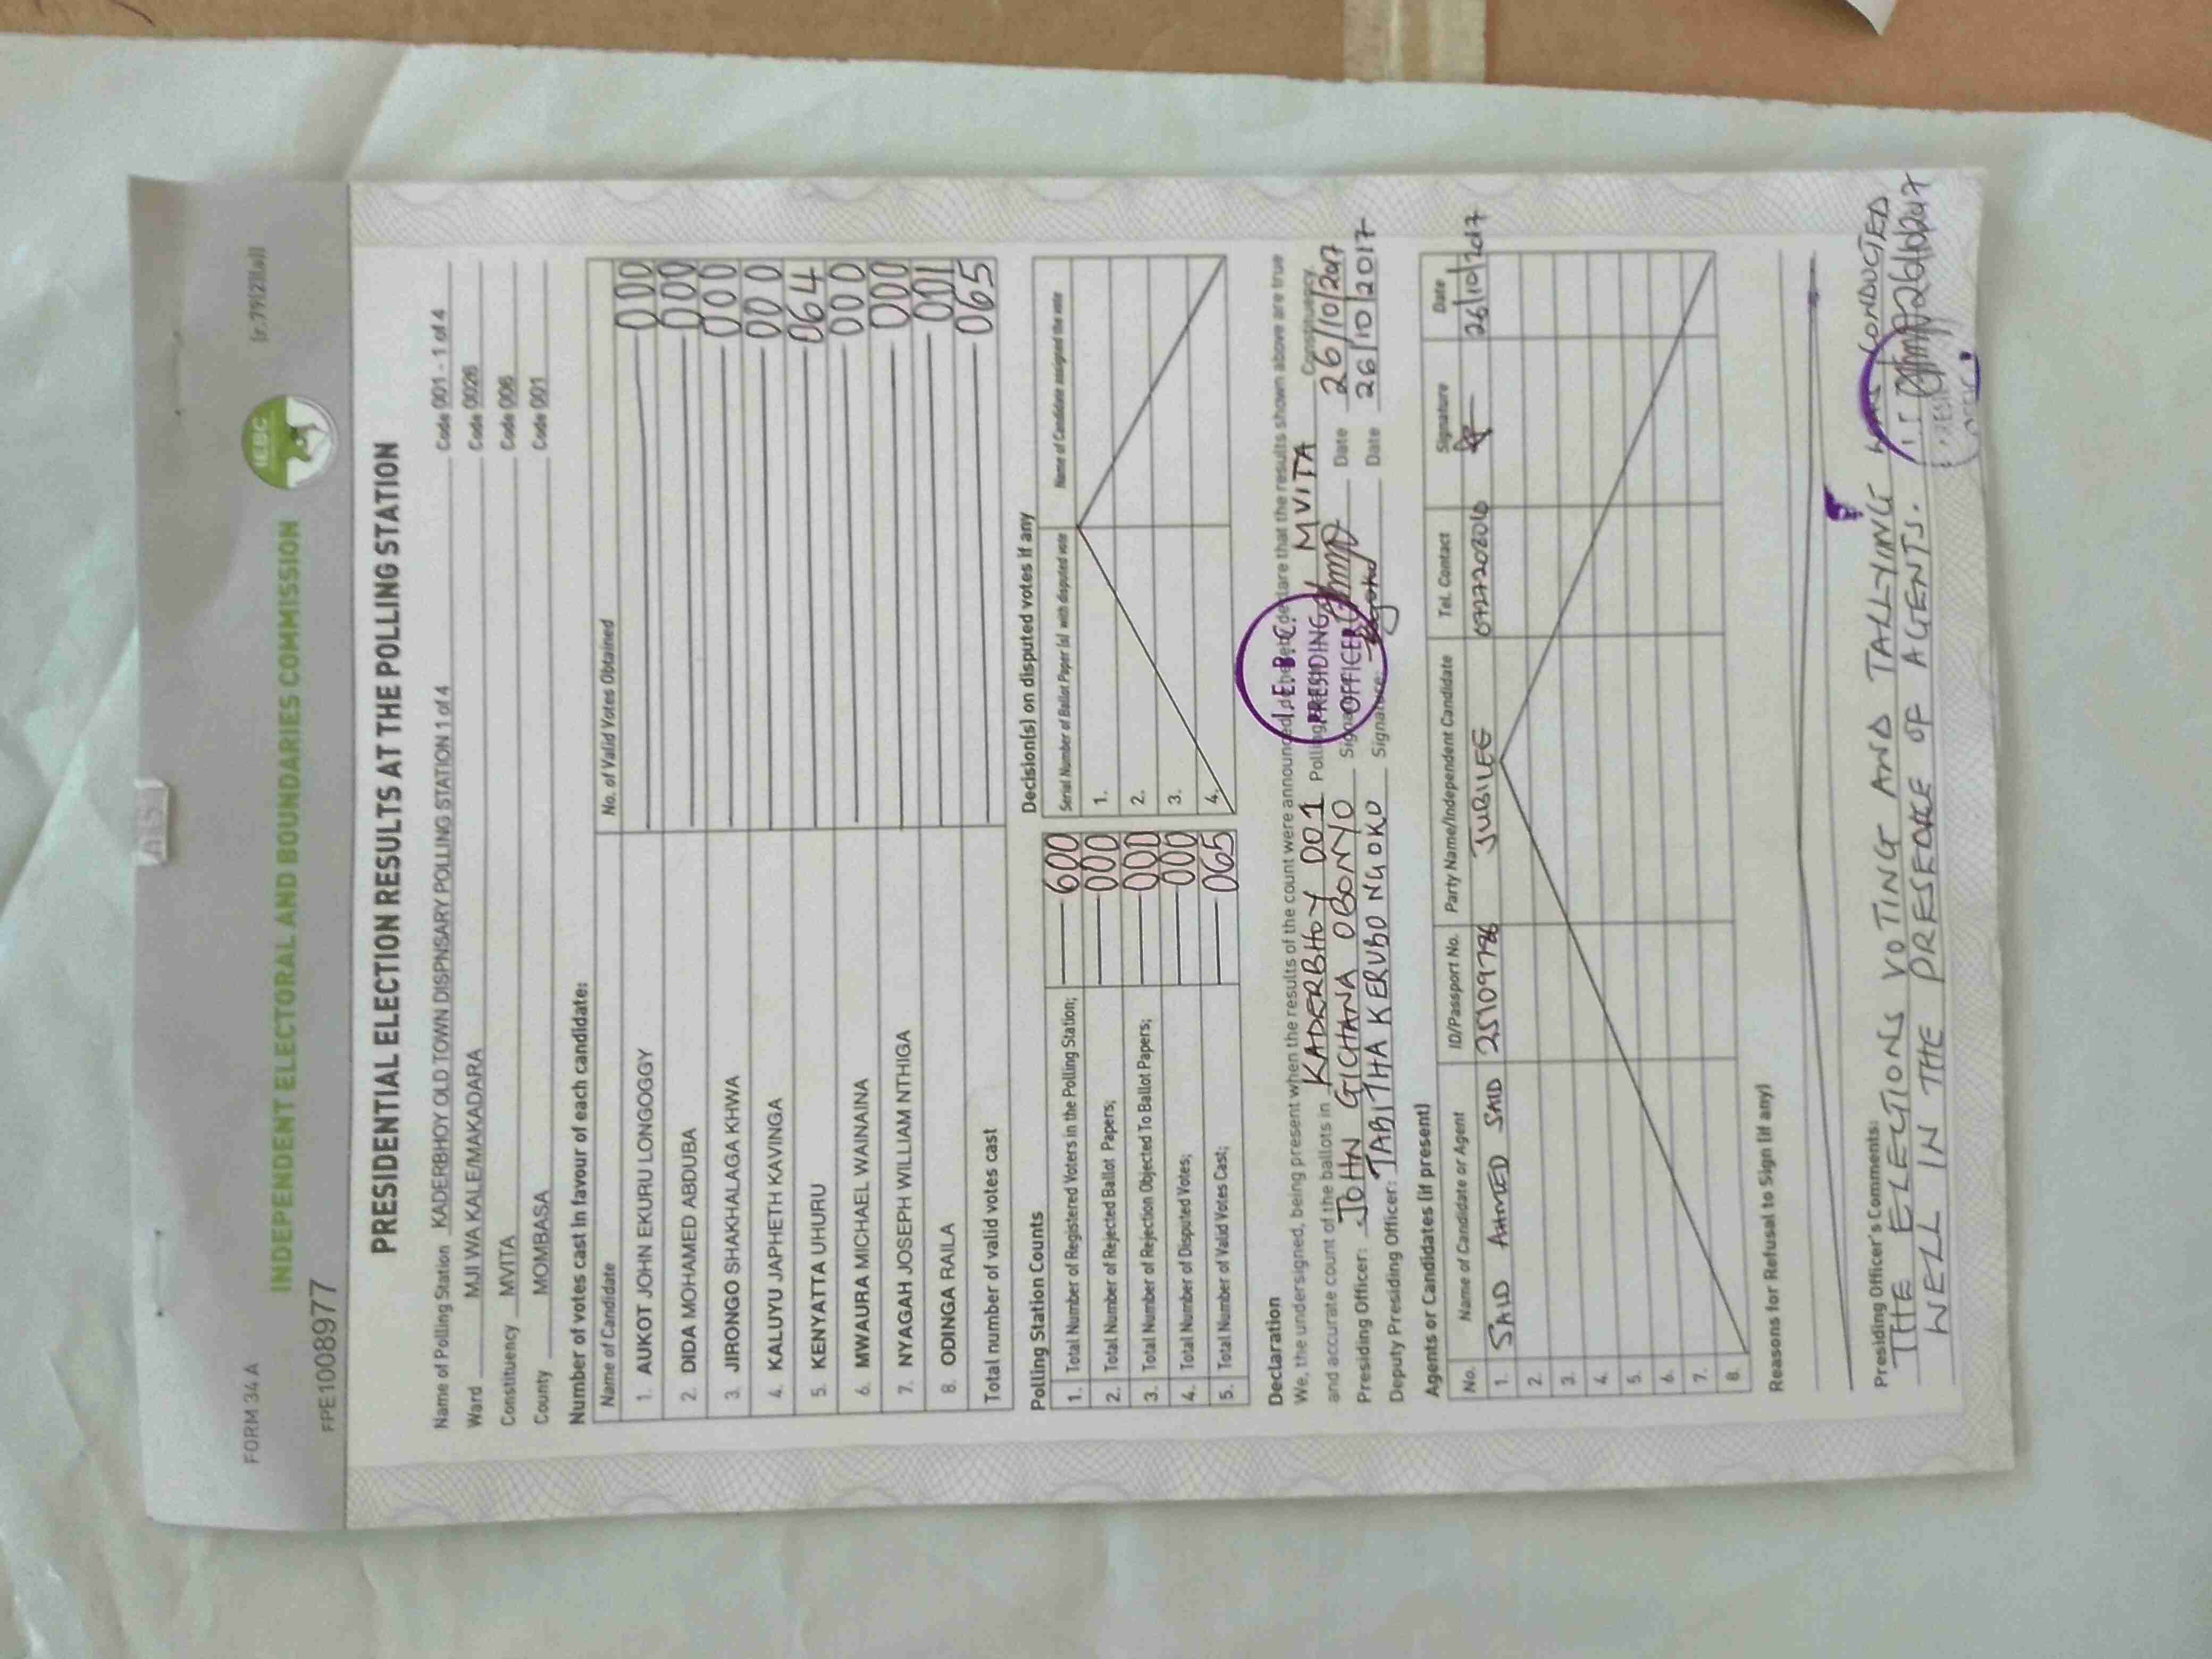 FORM 34 A
INDEPENDENT ELECTORAL AND BOUNDARIES COMMISSION
IEBC
FPE1008977
PRESIDENTIAL ELECTION RESULTS AT THE POLLING STATION
Name of Polling Station KADERBHOY OLD TOWN DISPNSARY POLLING STATION 1 of 4 Code 001 - 1 of 4
Ward MJI WA KALE/MAKADARA Code 0026
Constituency MVITA Code 006
County MOMBASA Code 001
Number of votes cast in favour of each candidate:
Name of Candidate No. of Valid Votes Obtained
1. AUKOT JOHN EKURU LONGOGGY 000
2. DIDA MOHAMED ABDUBA 000
3. JIRONGO SHAKHALAGA KHWA 000
4. KALUYU JAPHETH KAVINGA 000
5. KENYATTA UHURU 064
6. MWAURA MICHAEL WAINAINA 000
7. NYAGAH JOSEPH WILLIAM NTHIGA 000
8. ODINGA RAILA 001
Total number of valid votes cast 065
Polling Station Counts
1. Total Number of Registered Voters in the Polling Station; 600
2. Total Number of Rejected Ballot Papers; 000
3. Total Number of Rejection Objected To Ballot Papers; 000
4. Total Number of Disputed Votes; 000
5. Total Number of Valid Votes Cast; 065
Decision(s) on disputed votes if any
Serial Number of Ballot Paper (s) with disputed vote Name of Candidate assigned the vote
1.
2.
3.
4.
Declaration
We, the undersigned, being present when the results of the count were announced, do hereby declare that the results shown above are true
and accurate count of the ballots in KADERBHOY 001 Polling MVITA Constituency.
Presiding Officer: JOHN GICHANA OBONYO Date 26/10/2017
Deputy Presiding Officer: TABITHA KERUBO NGOKO Signature: Date 26/10/2017
I.E.B.C.
PRESIDING
OFFICER
Agents or Candidates (if present)
No. Name of Candidate or Agent ID/Passport No. Party Name/Independent Candidate Tel. Contact Signature Date
1. SAID AHMED SAID 25109786 JUBILEE 0727202016 26/10/2017
2.
3.
4.
5.
6.
7.
8.
Reasons for Refusal to Sign (if any)
Presiding Officer's Comments:
THE ELECTIONS VOTING AND TALLYING WAS CONDUCTED
WELL IN THE PRESENCE OF AGENTS. 26/10/2017